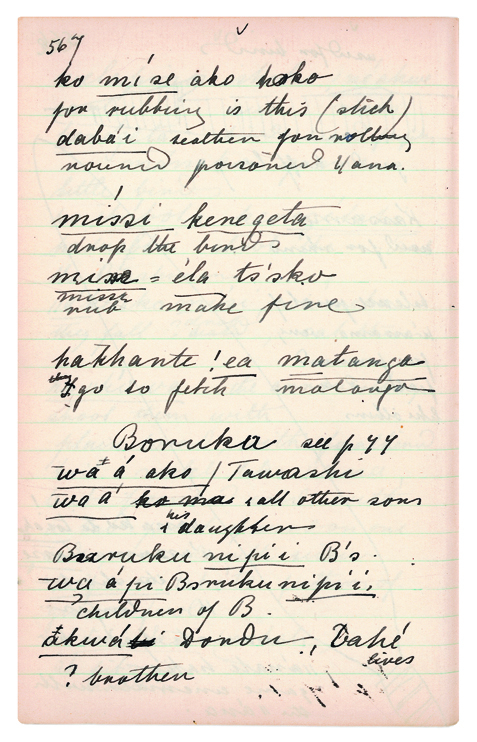 567
ko míse ako hoko
for rubbing is this (stick)
dabá'i leather for rolling
round poisoned Yana.
míssi kenegeta
drop the birds
mise = éla ts'sko
missi
rub make fire
hakhante !ea matanga
go to fetch matanga
Boruka see p 44
wa á ako / Tawashi
waá ko ma & all other sons
& his daughters
Boruku nipi i B's.
wa á pi Boruku nipi i.
? children of B.
ákwá Dondu, Dahé
lives
? brother